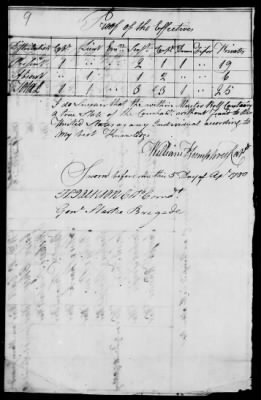 9
Proof of the Effectives
Capt Lieut Ens Serjt Corpl Drum Fife Privates
Present 1 1 2 1 1 19
Absent 1 1 2 6
Total 1 1 1 3 3 1 25
I do Swear that the within Muster Roll Contains
a true State of the Company without fraud to the
United States or any Individual according to
my best Knowledge
William Humphrey Capt
Sworn before me this 5 Day of Apl 1780
Genl Starks Brigade